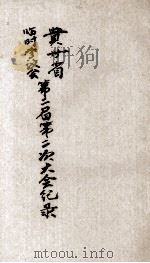 贵州省
临时参议会
第二届第二次大会纪录
mtoou.info